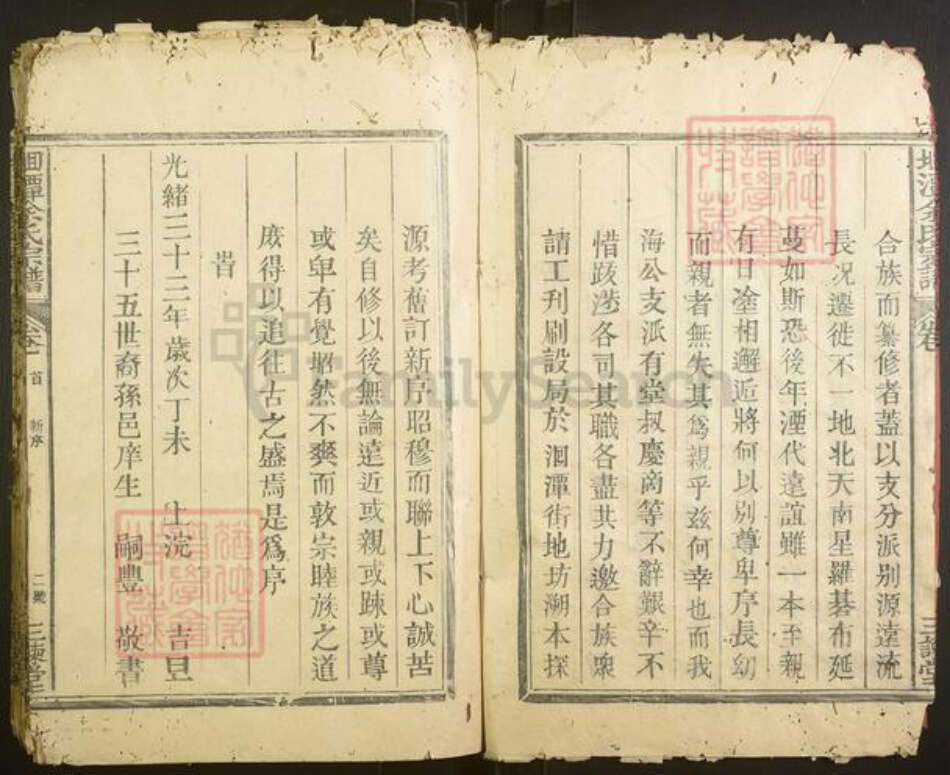 合族而纂修者蓋以支分派别源遠流
長況遷徙不一地北天南星羅碁布延
蔓如斯恐後年湮代遠誼雖一本至親
有日塗相邂逅將何以別尊卑序長幼
而親者無失其爲親乎兹何幸也而我
海公支派有堂叔慶商等不辭艱辛不
惜跋涉各司其職各盡其力邀合族衆
請工刊刷設局於洄潭街地坊溯本探
源考舊訂新序昭穆而聯上下心誠苦
矣自修以後無論遠近或親或踈或尊
或卑有覺昭然不爽而敦崇睦族之道
庶得以追往古之盛焉是爲序
旹
光緒三十三年歲次丁未 上浣 吉旦
三十五世裔孫邑庠生 嗣豐 敬書
潭余氏宗譜 卷一 首 新序 二號 三讓堂
FamilySearch